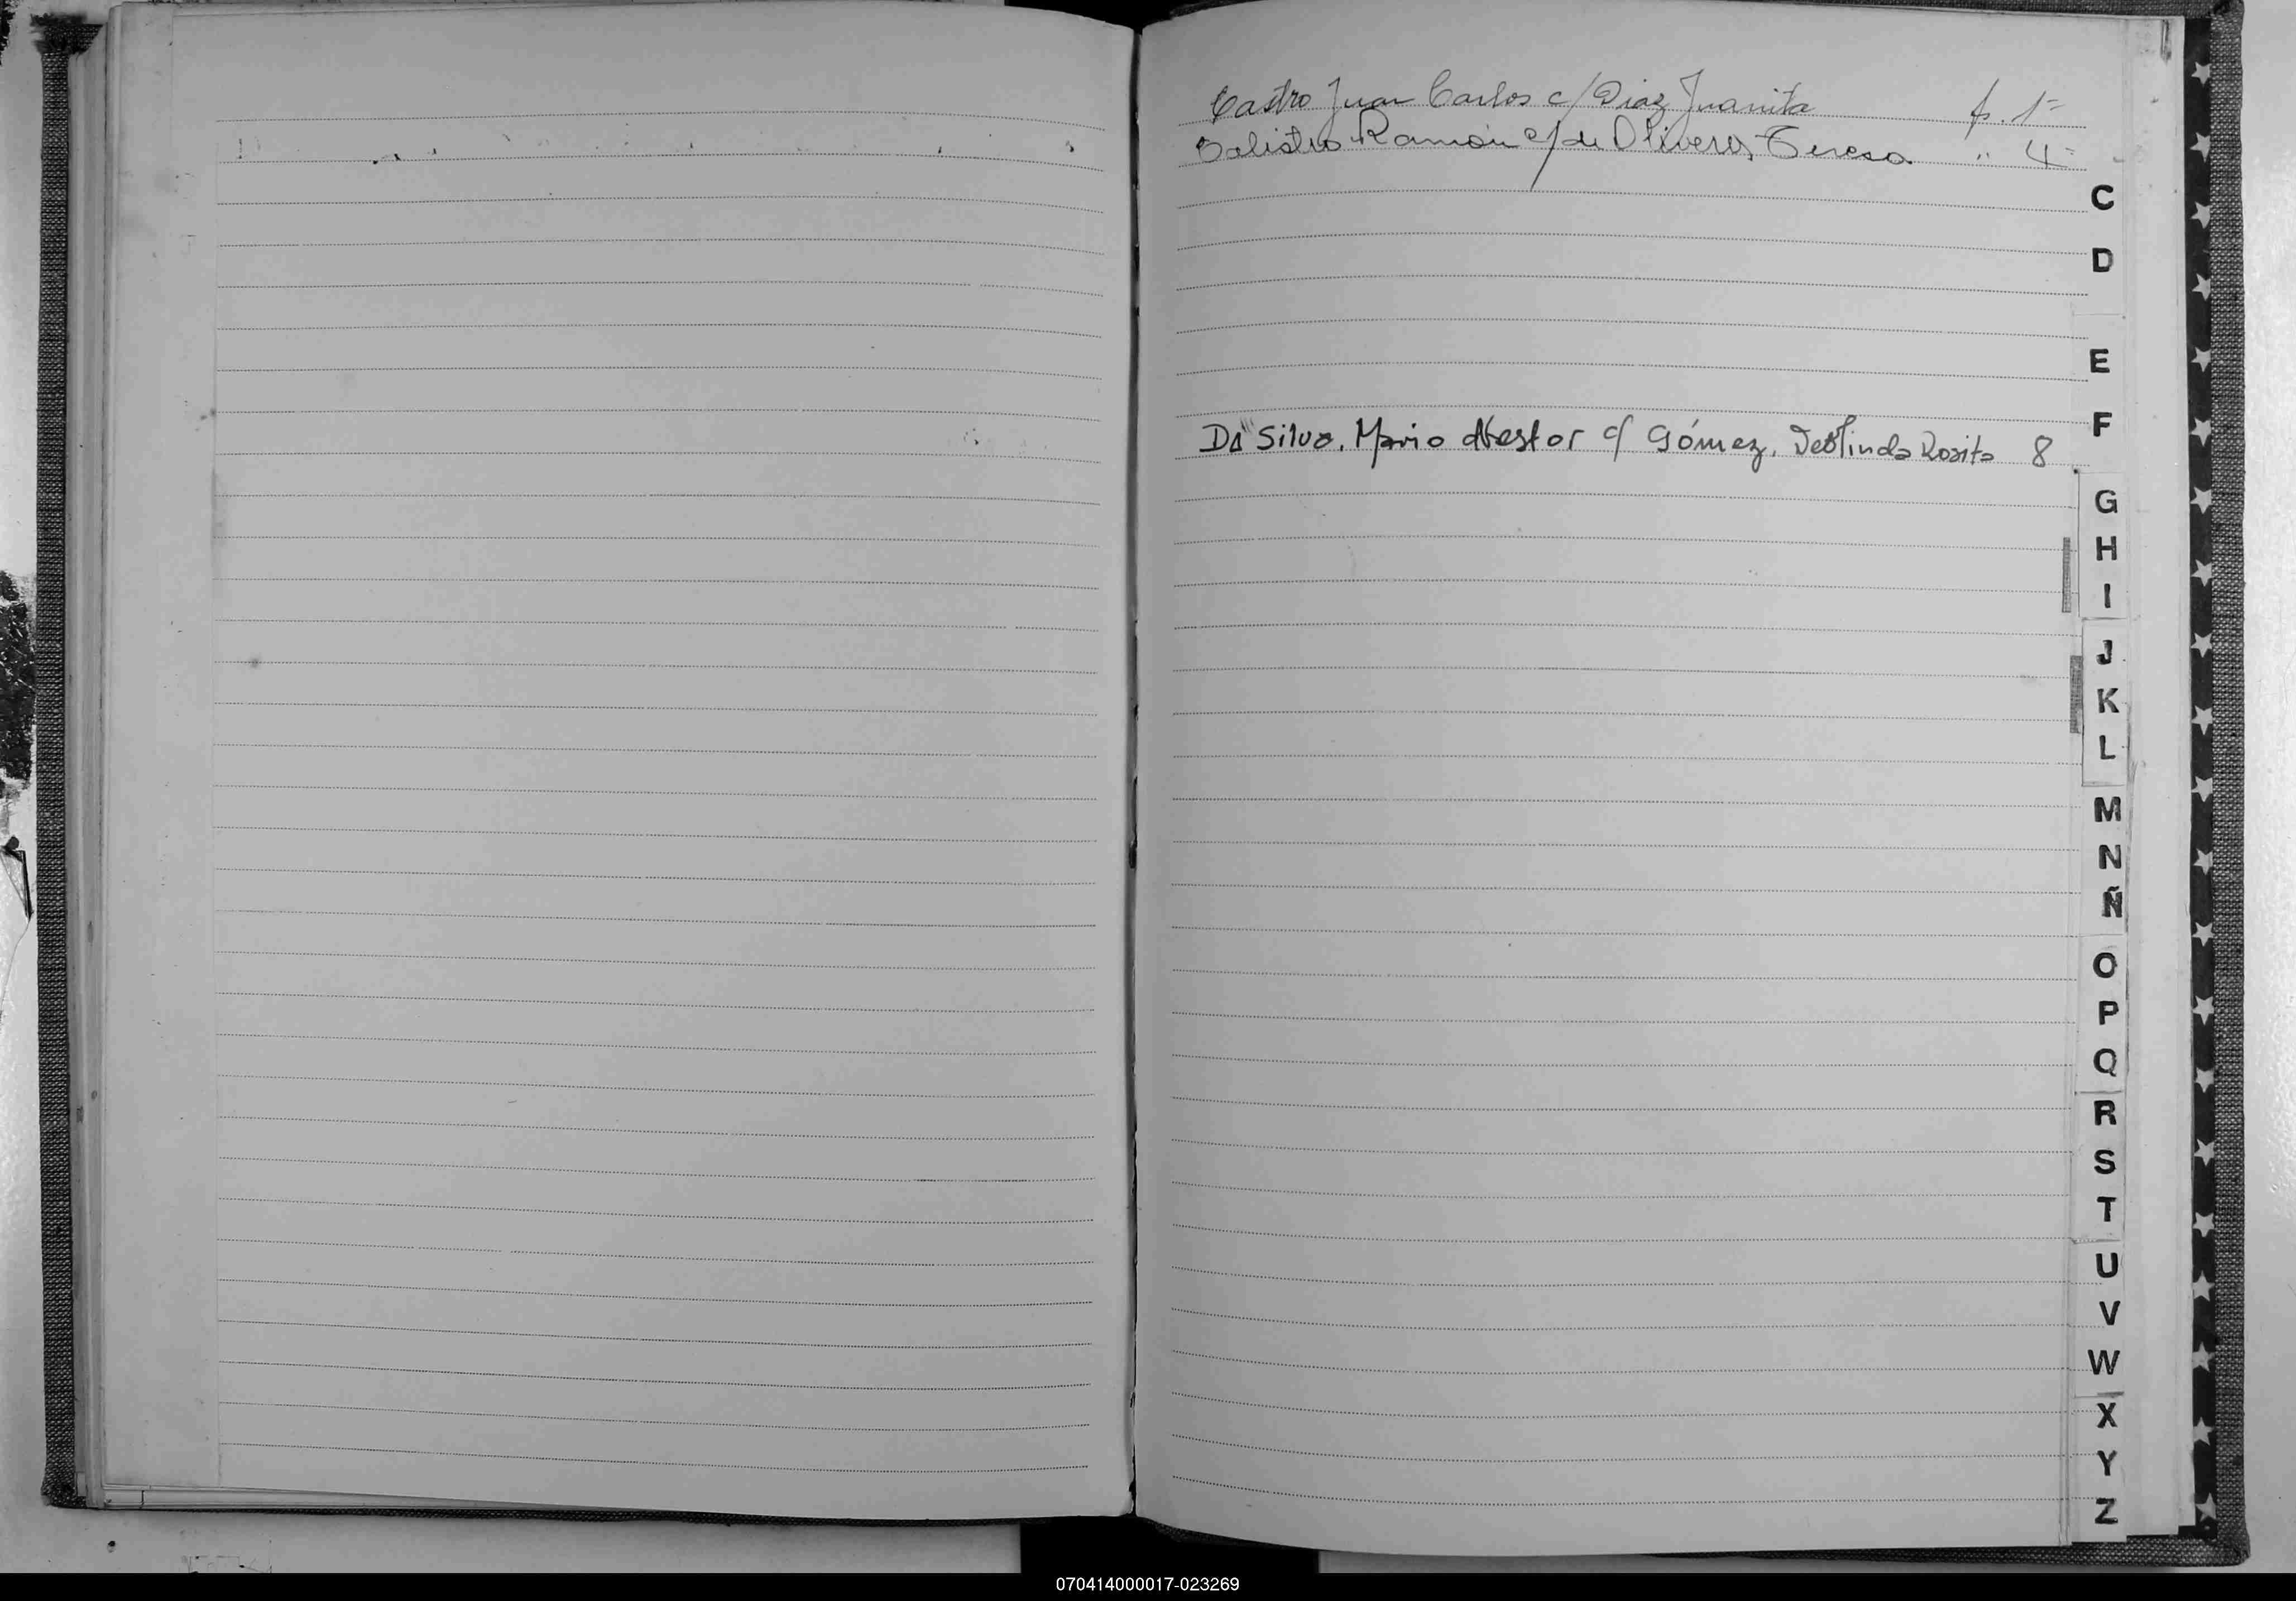 Castro Juan Carlos c/ Diaz Juanita f. 1-
Calistro Ramón c/ de Olivera, Teresa " 4-
C
D
E
F
Da Silva, Mario Nestor c/ Gómez, Rosita 8
G
H
I
J
K
L
M
N
Ñ
O
P
Q
R
S
T
U
V
W
X
Y
Z
070414000017-023269